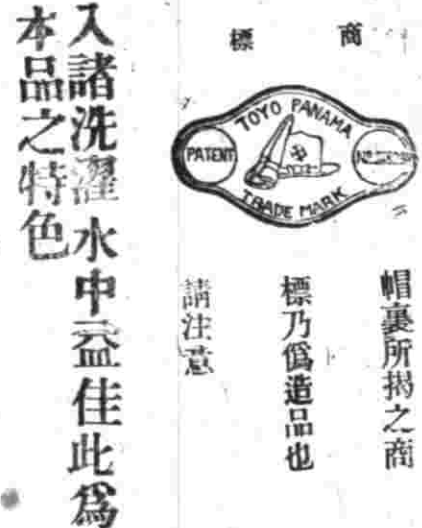 商標
TOYO PANAMA
PATENT
TRADE MARK
帽裏所揭之商
標乃僞造品也
請注意
入諸洗濯水中益佳此爲
本品之特色